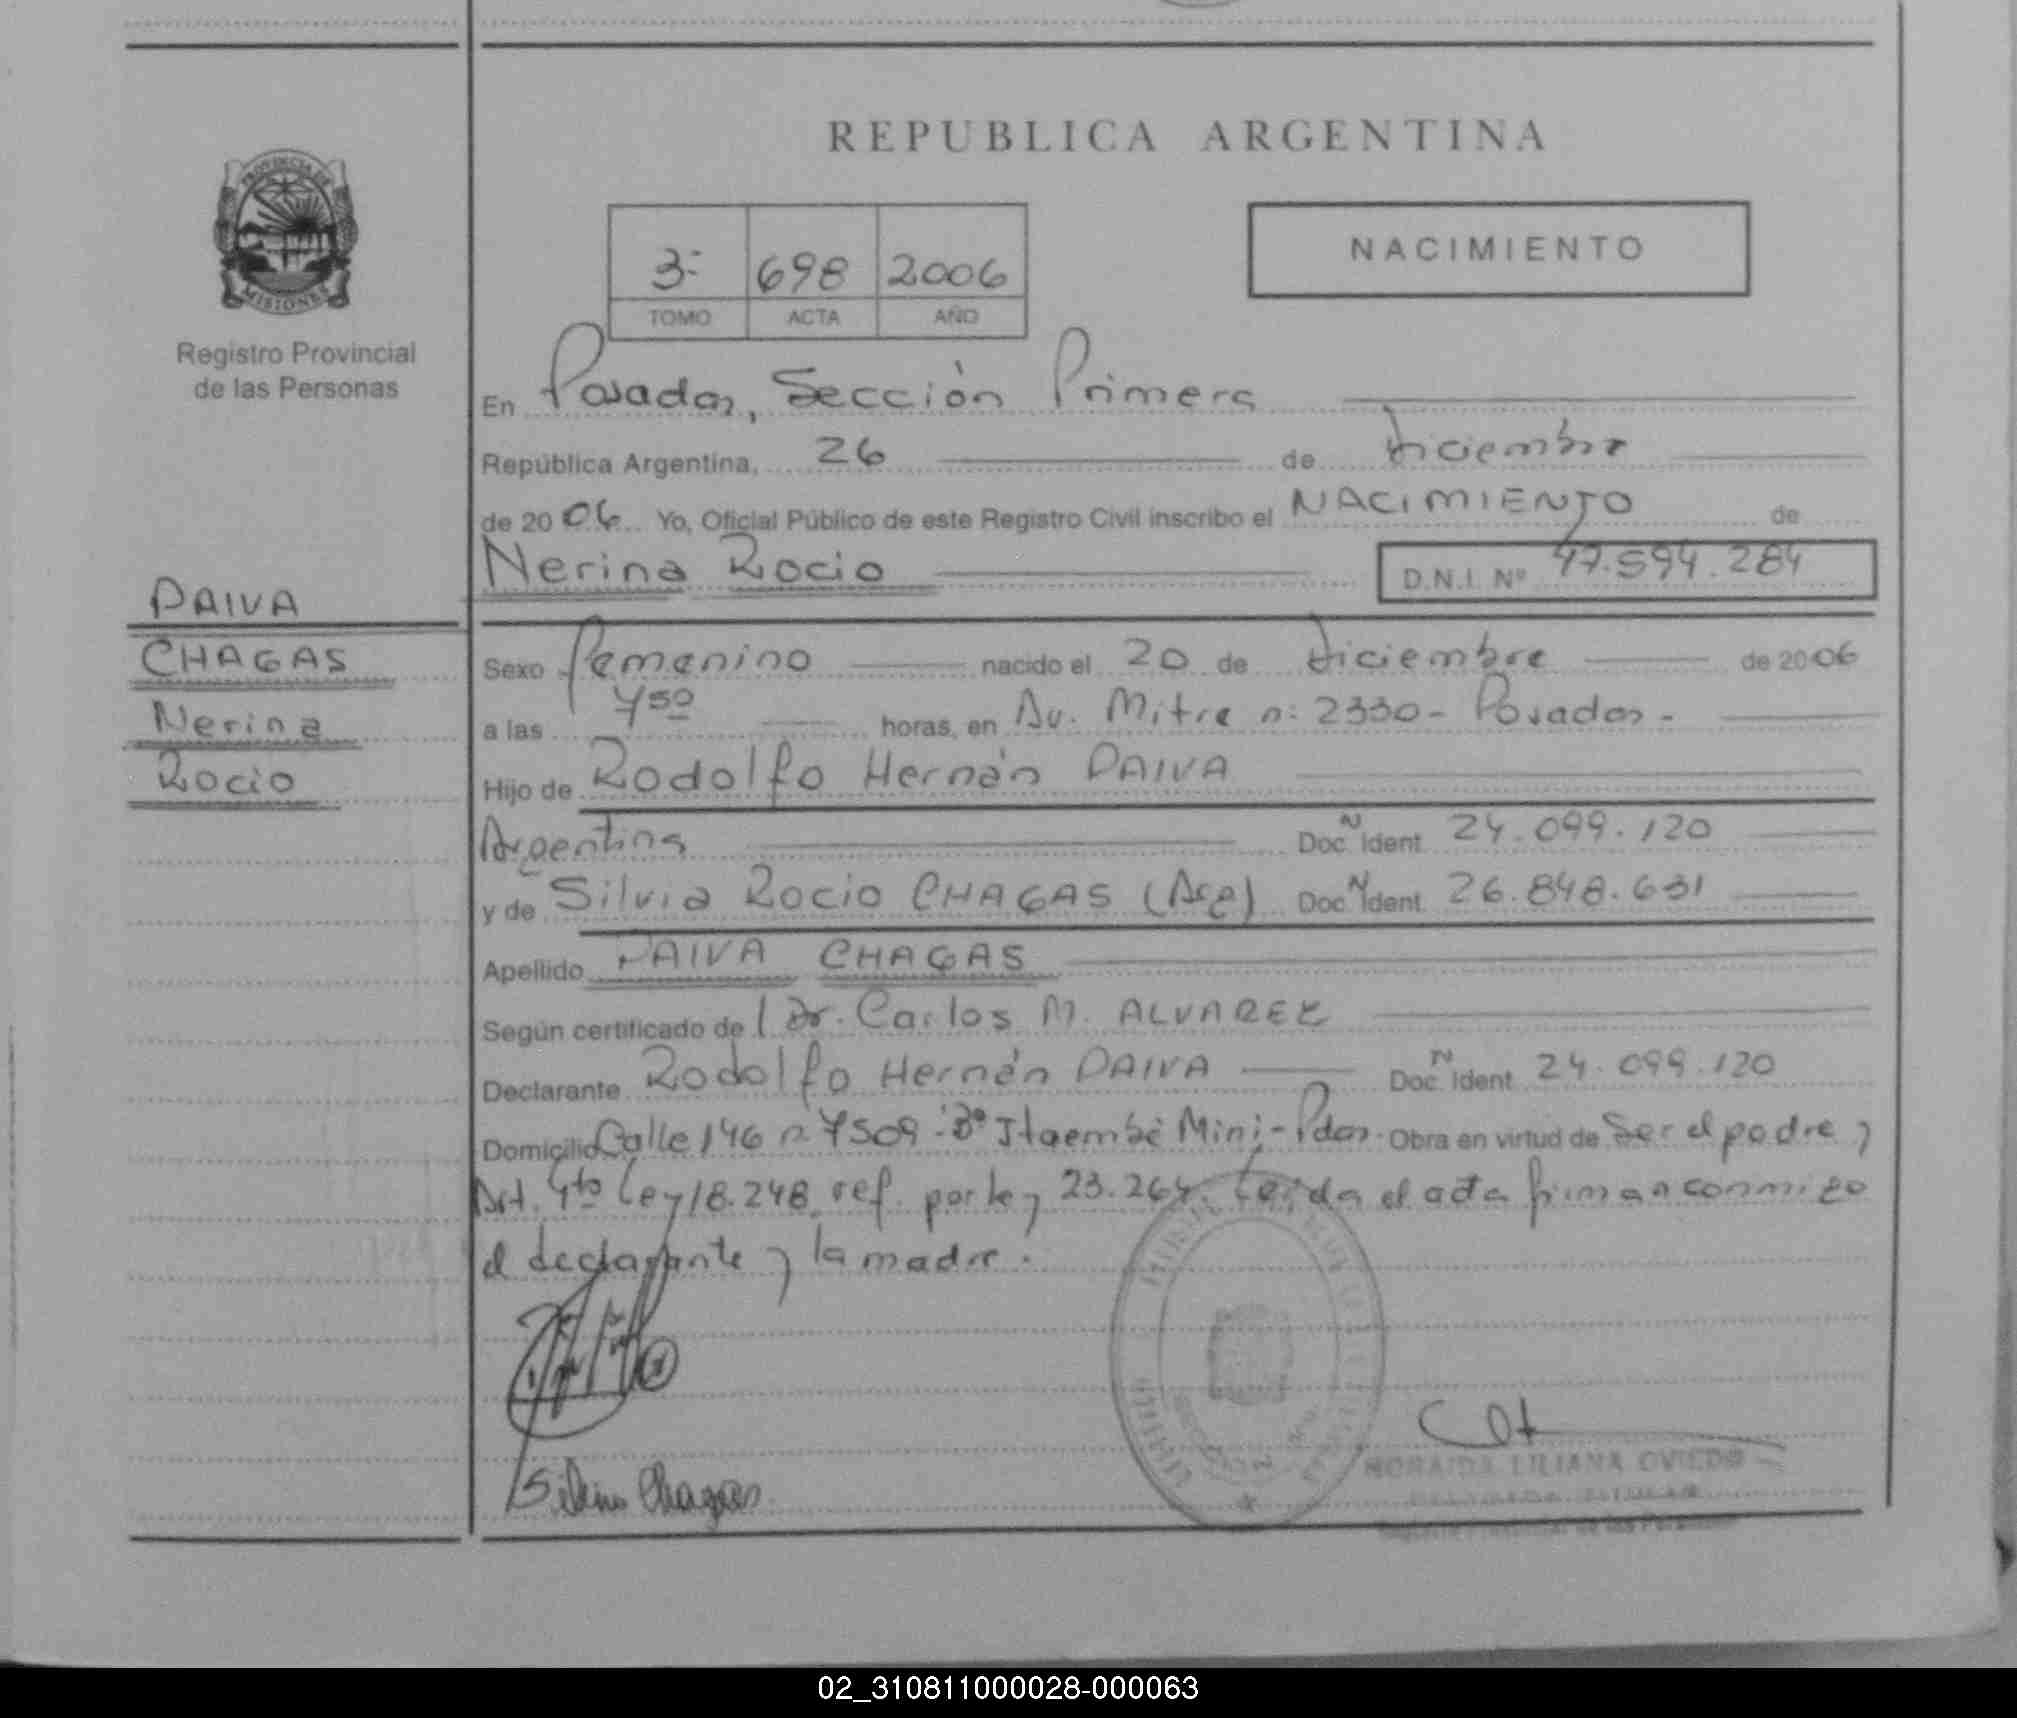 REPUBLICA ARGENTINA
PROVINCIA DE
MISIONES
Registro Provincial
de las Personas
3º 698 2006
TOMO ACTA AÑO
NACIMIENTO
En Posadas, Sección Primera
República Argentina, 26 de diciembre
de 2006 Yo, Oficial Público de este Registro Civil inscribo el NACIMIENTO de
Nerina Rocio D.N.I. Nº 47.594.284
PAIVA
CHAGAS
Nerina
Rocio
Sexo femenino nacido el 20 de diciembre de 2006
a las 7 50 horas, en Av. Mitre nº 2330 - Posadas -
Hijo de Rodolfo Hernán PAIVA
Argentina Doc. N Ident. 24.099.120
y de Silvia Rocio CHAGAS (Arg) Doc. N Ident. 26.848.631
Apellido PAIVA CHAGAS
Según certificado de l Dr. Carlos M. ALVAREZ
Declarante Rodolfo Hernán PAIVA Doc. N Ident. 24.099.120
Domicilio Calle 146 nº 7509 - Bº Itaembé Mini - Pdas. Obra en virtud de Ser el padre y
Art. 4to Ley 18.248 ref. por ley 23.264. Leída el acta firman conmigo
el declarante y la madre.
Silvia Chagas
LILIANA OVIEDO
02_310811000028-000063